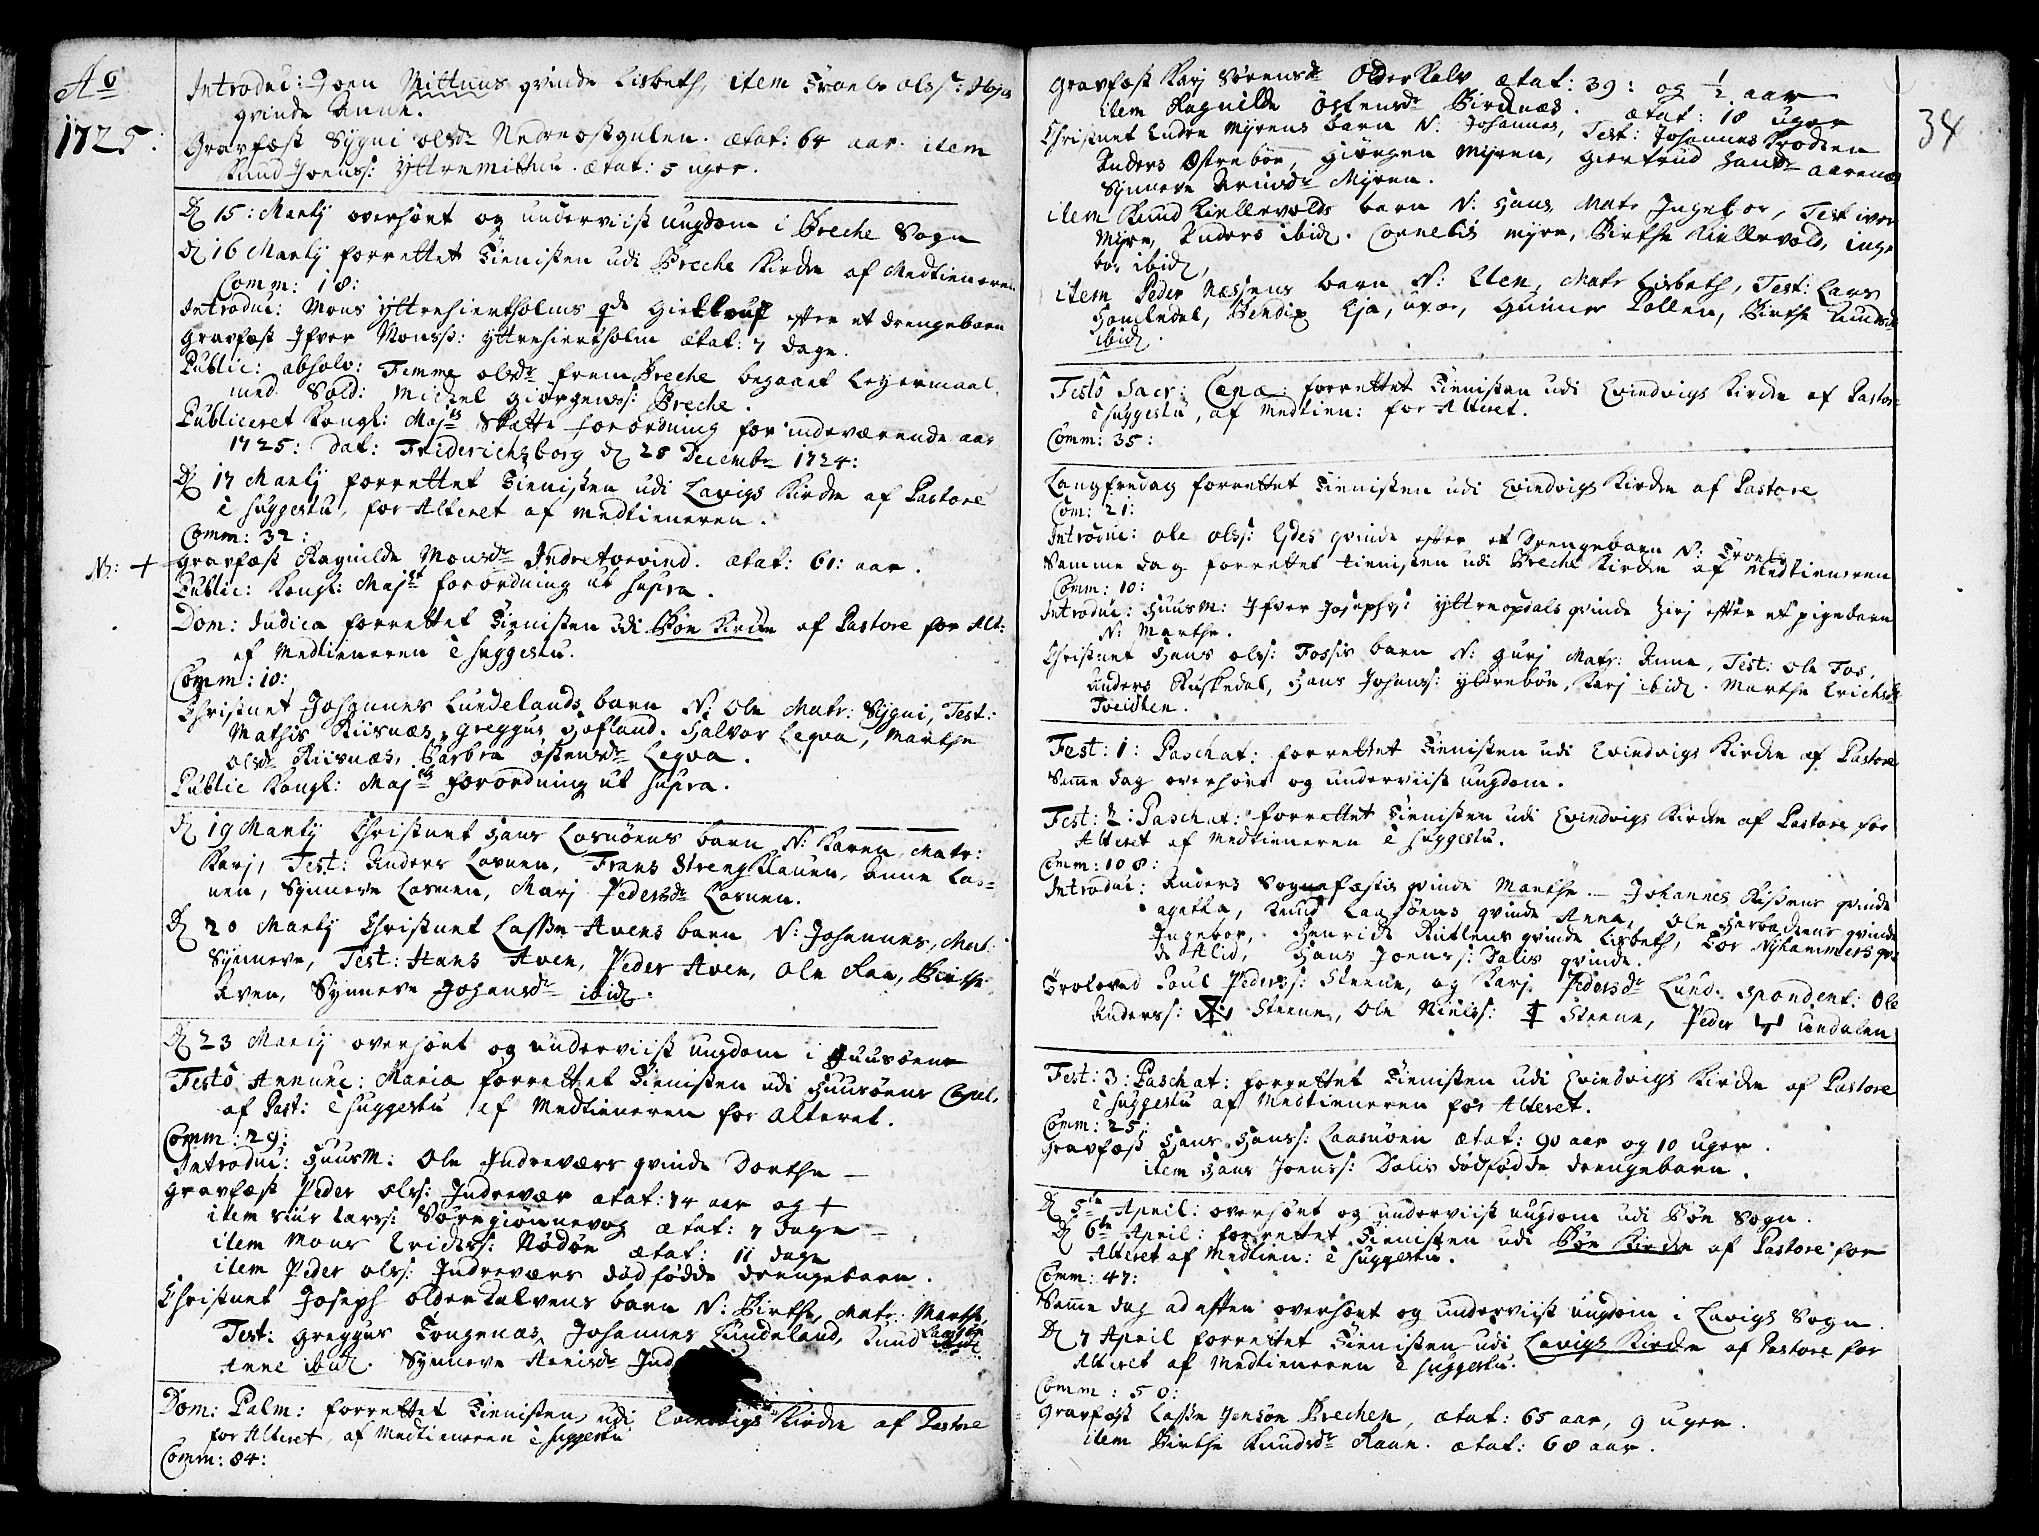 Aº
1725:
Introduc: Joen Mittuns qvinde Lisbeth, item Troels olss:
qvinde Anne.
Gravfæst Sygni olsdr Nedreostgulen. ætat: 64 aar. item
Knud Joenss: Yttremithun. ætat: 5 uger.
D 15: Martij overhørt og underviist ungdom i Breche Sogn
D 16 Martij forrettet Tienisten udi Breche Kirche af Medtieneren
Comm: 18:
Introduc: Mons Yttrehiertholms qde effter et drengebarn
Gravfæst Ifver Monss: Yttrehiertholm ætat: 7 dage.
Public: absolv: Femme olsdr frem Breche begaaet Leyermaal
med Sold: Michel Giørgenss: Breche.
Publiceret Kongl: Majts Skatte forordning for indeværende aar
1725: dat: Friderichsborg D 28 Decembr 1724:
D 17 Martij forrettet Tienisten udi Lavigs Kirche af Pastore
è suggestu, for Alteret af Medtieneren.
Comm: 32:
N: + Gravfæst Ragnilde Monsdr Indre ætat: 61: aar.
Public: Kongl: Majts forordning ut supra.
Dom: Judica forrettet Tienisten udi Bøe Kirche af Pastore for Alt:
af Medtieneren è suggestu.
Comm: 10:
Christnet Johannes Lundelands barn N: Ole Matr: Sygni, Test:
Mathis Riisnæs, Greggus Hofland. Halvor Leqva, Marthe
olsdr Riisnæs, Barbra østensdr Leqva.
Public Kongl: Majts forordning ut supra.
D 19 Martij Christnet Hans Losnøens barn N: Karen, Matr:
Karj, Test: Anders Losnen, Frans Anne Los=
nen, Synneve Losnen, Marj Pedersdr Losnen.
D 20 Martij Christnet Lasse Avens barn N: Johannes, Mat:
Synneve, Test: Hans Aven, Peder Aven, Ole Raa, Birthe
Aven, Synneve Johansdr ibid.
D 23 Martij overhørt og underviist ungdom i Huusøene
Festo Annunc: Maria forrettet Tienisten udi Huusøens Capel.
af Past: è suggestu af Medtieneren for alteret.
Comm: 29:
Introduc: Huusm: Ole Indreværs qvinde Dorthe —
Gravfæst Peder olss: Indrevær ætat: 74 aar og +
item Siur Larss: ætat: 7 dage —
item Mons Erichss: Nødøe ætat: 11 dage
item Peder olss: Indreværs dødfødde drengebarn.
Christnet Joseph olderkalvens barn N: Birthe, Matr: Marthe,
Test: Greggus Tongenæs, Johannes Lundeland, Knud
Anne ibid. Synneve Ind
Dom: Palm: forrettet Tienisten udi Evindvigs Kirche af Pastore
for Alteret, af Medtieneren è suggestu
Comm: 84:
34
Gravfæst Karj Sørensdr Olderkalv ætat: 39: og ½ aar
item Ragnilde Østensdr Birknæs. ætat: 18 uger
Christnet Endre Myrens barn N: Johannes, Test: Johannes
Anders Østrebøe, Giørgen Myren, Giertrud Hansdr
Synneve Myren.
item Knud Kiellevolds barn N: Hans, Matr Ingebor, Test iver
Myre, Anders ibid. Cornelis Myre, Birthe Kiellevold, inge
bor ibid.
item Peder Næssens barn N: Elen, Matr Lisbeth, Test: Lars
Bendix Eja, Gunner Pollen, Birthe Knudsdr
ibid.
Festo Sacr: Cænæ: forrettet Tienisten udi Evindvigs Kirche af Pastore
è suggestu, af Medtien: for Alteret.
Comm: 35:
Langfredag forrettet Tienisten udi Evindvigs Kirche af Pastore
Com: 21:
Introduc: ole olss: Eides qvinde effter et Drengebarn N: Troels
Samme dag forrettet tienisten udi Breche Kirche af Medtieneren
Comm: 10:
Introduc: Huusm: Ifver Josephs: Yttreopdals qvinde effter et pigebarn
N: Marthe.
Christnet Hans olss: Fossis barn N: Gurj Matr: Anne, Test: Ole Fos,
Anders Ruskedal, Hans Johanss: Yldrebøe, Karj ibid. Marthe Erichsdr
Tveidten.
Fest: 1: Paschat: forrettet Tienisten udi Evindvigs Kirche af Pastore
Same dag overhørt og underviist ungdom.
Fest: 2: Paschat: forrettet Tienisten udi Evindvigs Kirche af Pastore for
Alteret af Medtieneren è suggestu.
Comm: 108:
Introduc: Anders Sognefæstis qvinde Marthe — Johannes qvinde
agetta, Knud qvinde Anna, Ole qvinde
Ingebor, Henrich qvinde Lisbeth, Tor Nyhammers qvin
de Alid, Hans Joenss: Dalis qvinde.
Troloved Poul Pederss: Steene, og Karj Pedersdr Lund. spondent: Ole
Anderss: Steene, Ole Nielss: Steene, Peder
Fest: 3: Paschat: forrettet Tienisten udi Evindvigs Kirche af Pastore
è suggestu af Medtieneren for Alteret.
Comm: 25:
Gravfæst Hans Hanss: ætat: 90 aar og 10 uger.
item Hans Joenss: Dalis dødfødde drengebarn.
D 5te April: overhørt og underviist ungdom udi Bøe Sogn.
D 6te April: forrettet Tienisten udi Bøe Kirche af Pastore for
Alteret af Medtien: è suggestu.
Comm: 47:
Same dag ad aften overhørt og underviist ungdom i Lavigs Sogn.
D 7 April forrettet Tienisten udi Lavigs Kirche af Pastore for
Alteret af Medtieneren è suggestu.
Comm: 50:
Gravfæst Lasse Brechen, ætat: 65 aar, 9 uger.
item Birthe Knudsdr Raae. ætat: 68 aar.